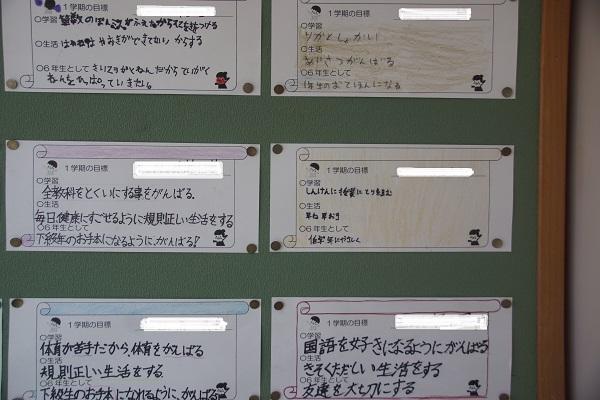 1学期の目標
○学習
算数の
○生活
からする
○6年生として
さいごの
1学期の目標
○学習
りかとしゃかい
○生活
あいさつがんばる
○6年生として
1年生のおてほんになる
1学期の目標
○学習
全教科をとくいにする事をがんばる。
○生活
毎日、健康にすごせるように規則正しい生活をする
○6年生として
下級年のお手本になるように、がんばる!
1学期の目標
○学習
しんけんに授業にとり組む
○生活
早ね早おき
○6年生として
低学年にやさしく
1学期の目標
○学習
体育が苦手だから、体育をがんばる
○生活
規則正しい生活をする
○6年生として
下級生のお手本になれるように、がんばる
1学期の目標
○学習
国語を好きになるように、がんばる
○生活
きそくただしい生活をする
○6年生として
友達を大切にする